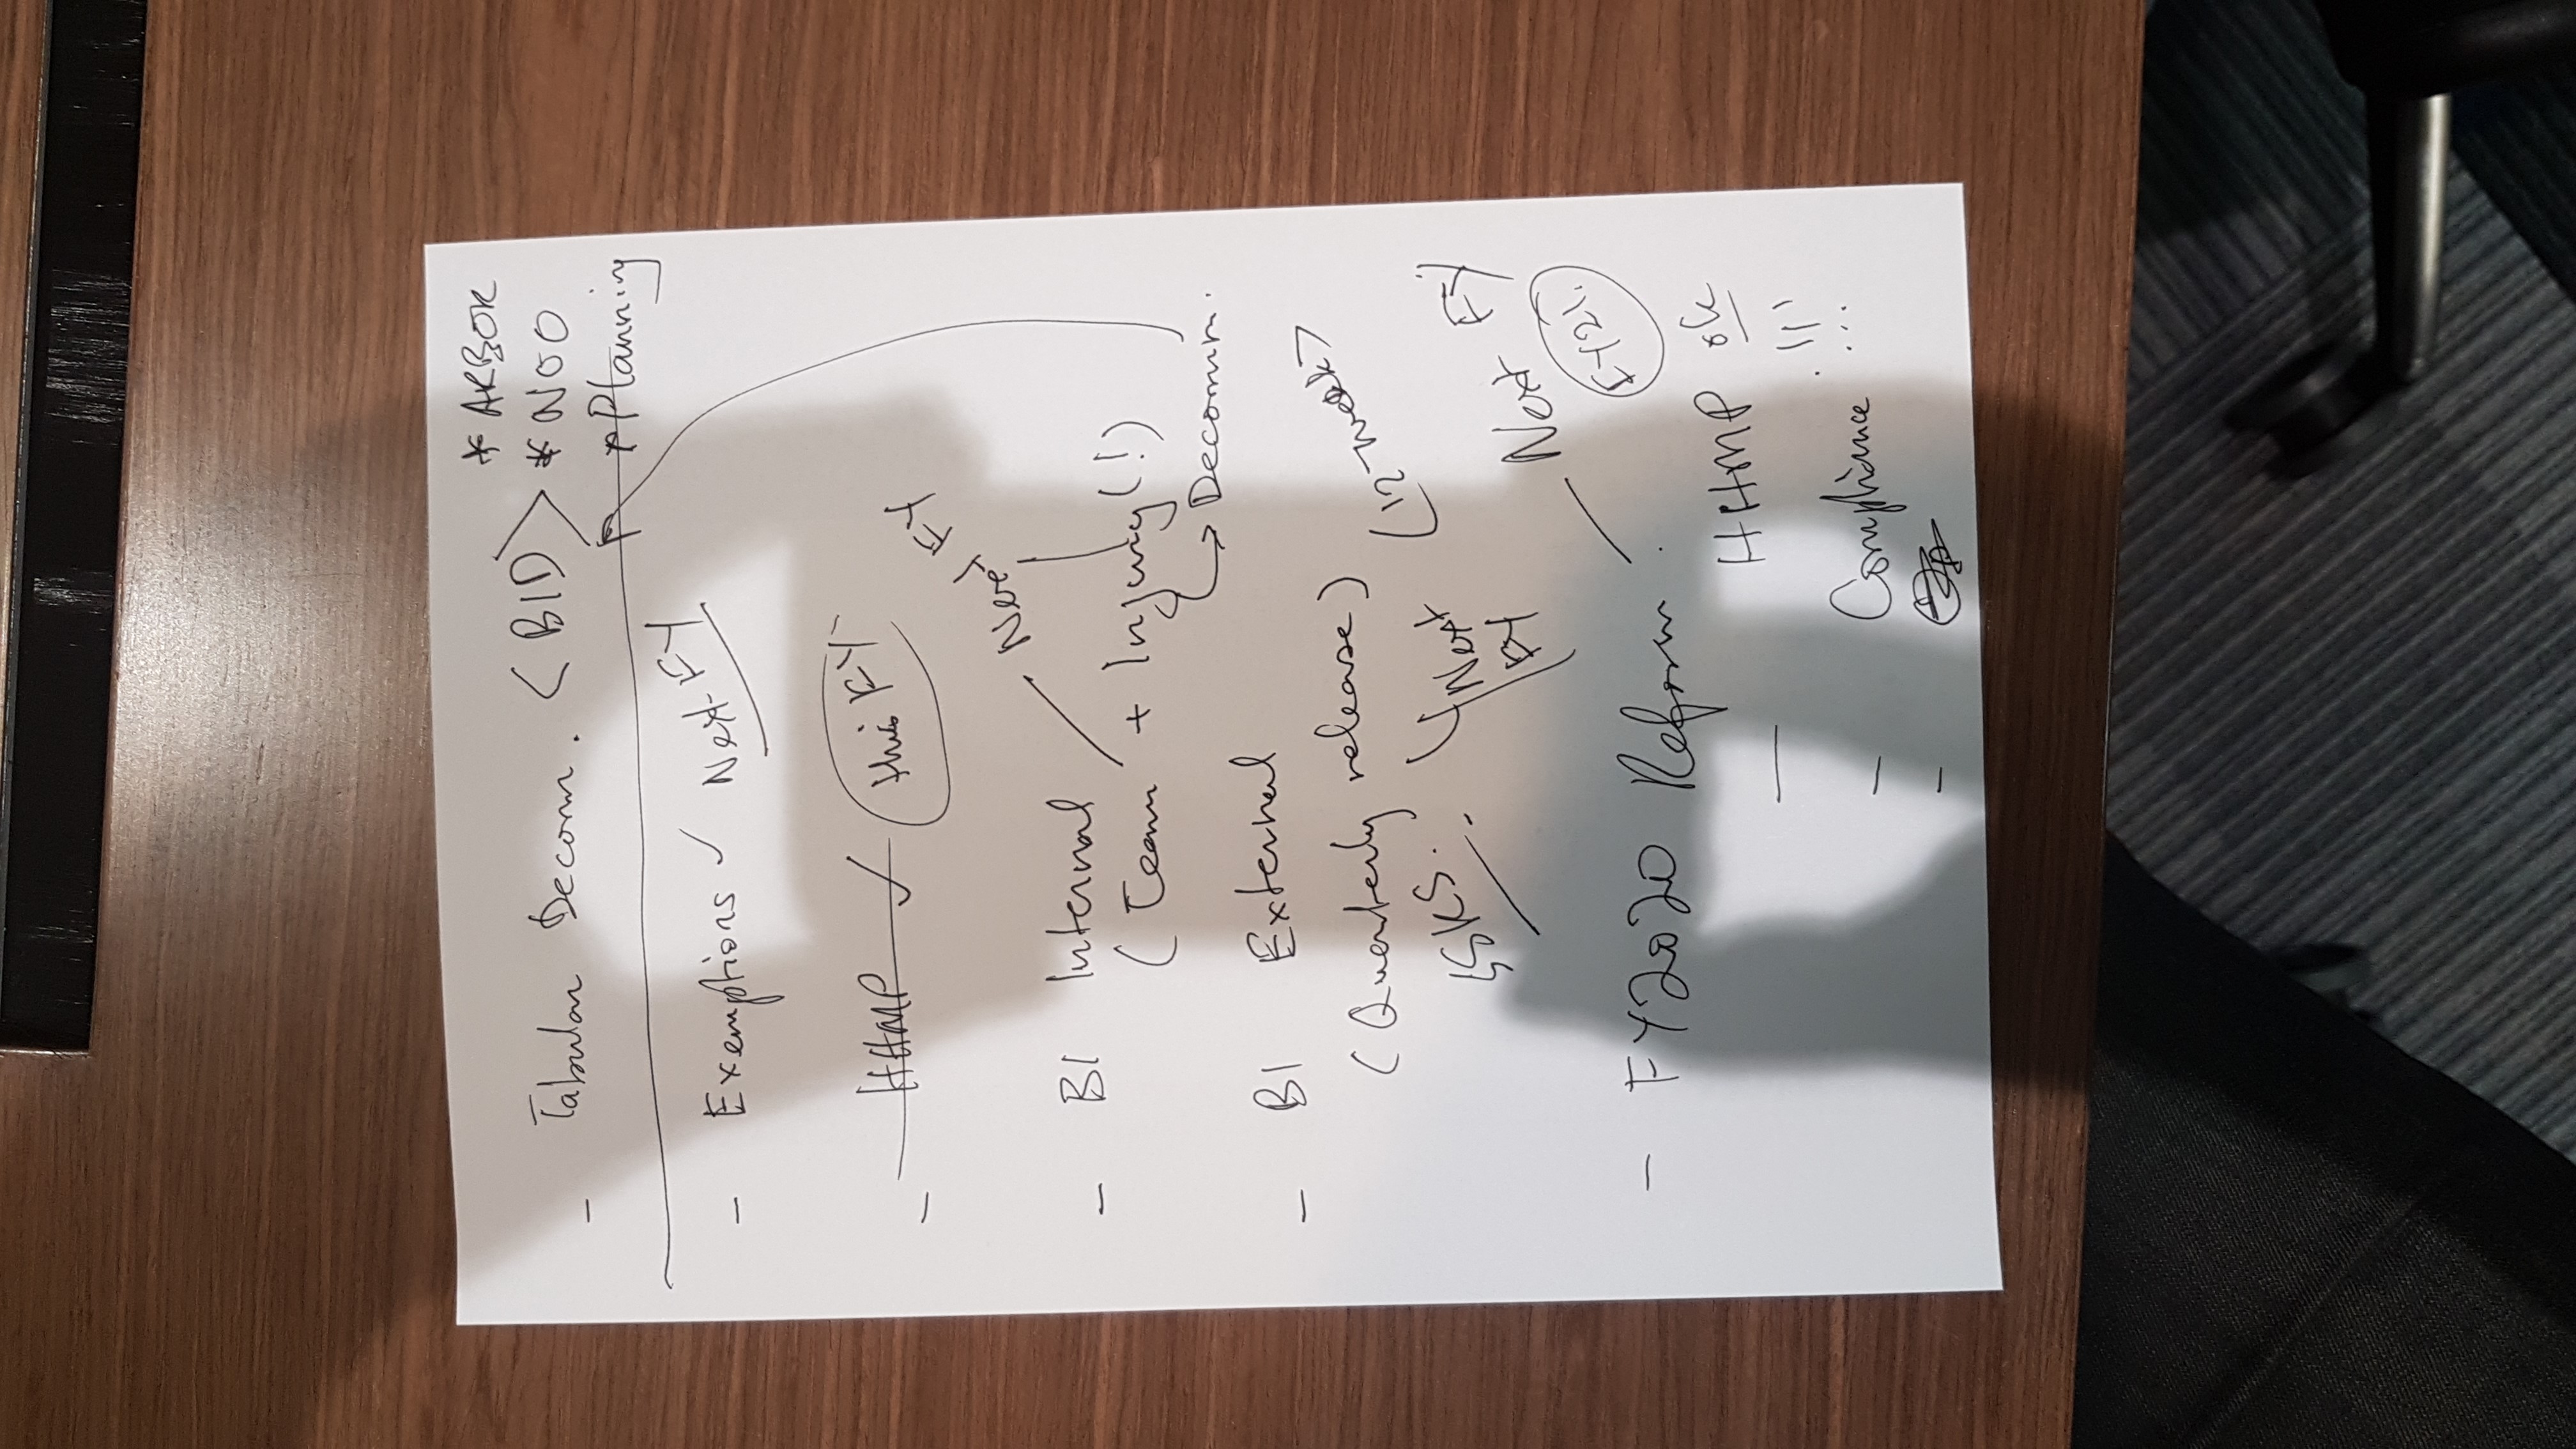 * ARBOR
- Tabular Decomm. (BID) > * NOO
* Planning
- Exemptions ✓ Next FY
- HHMP ✓ this FY
- BI Internal / Next FY
(Team + Injury (!)
→ Decomm.
- BI External
(Quarterly release) (12-week)
Next FY
- FY2020 Reform. / Next FY
FY21.
— HHMP
- Compliance ...
-